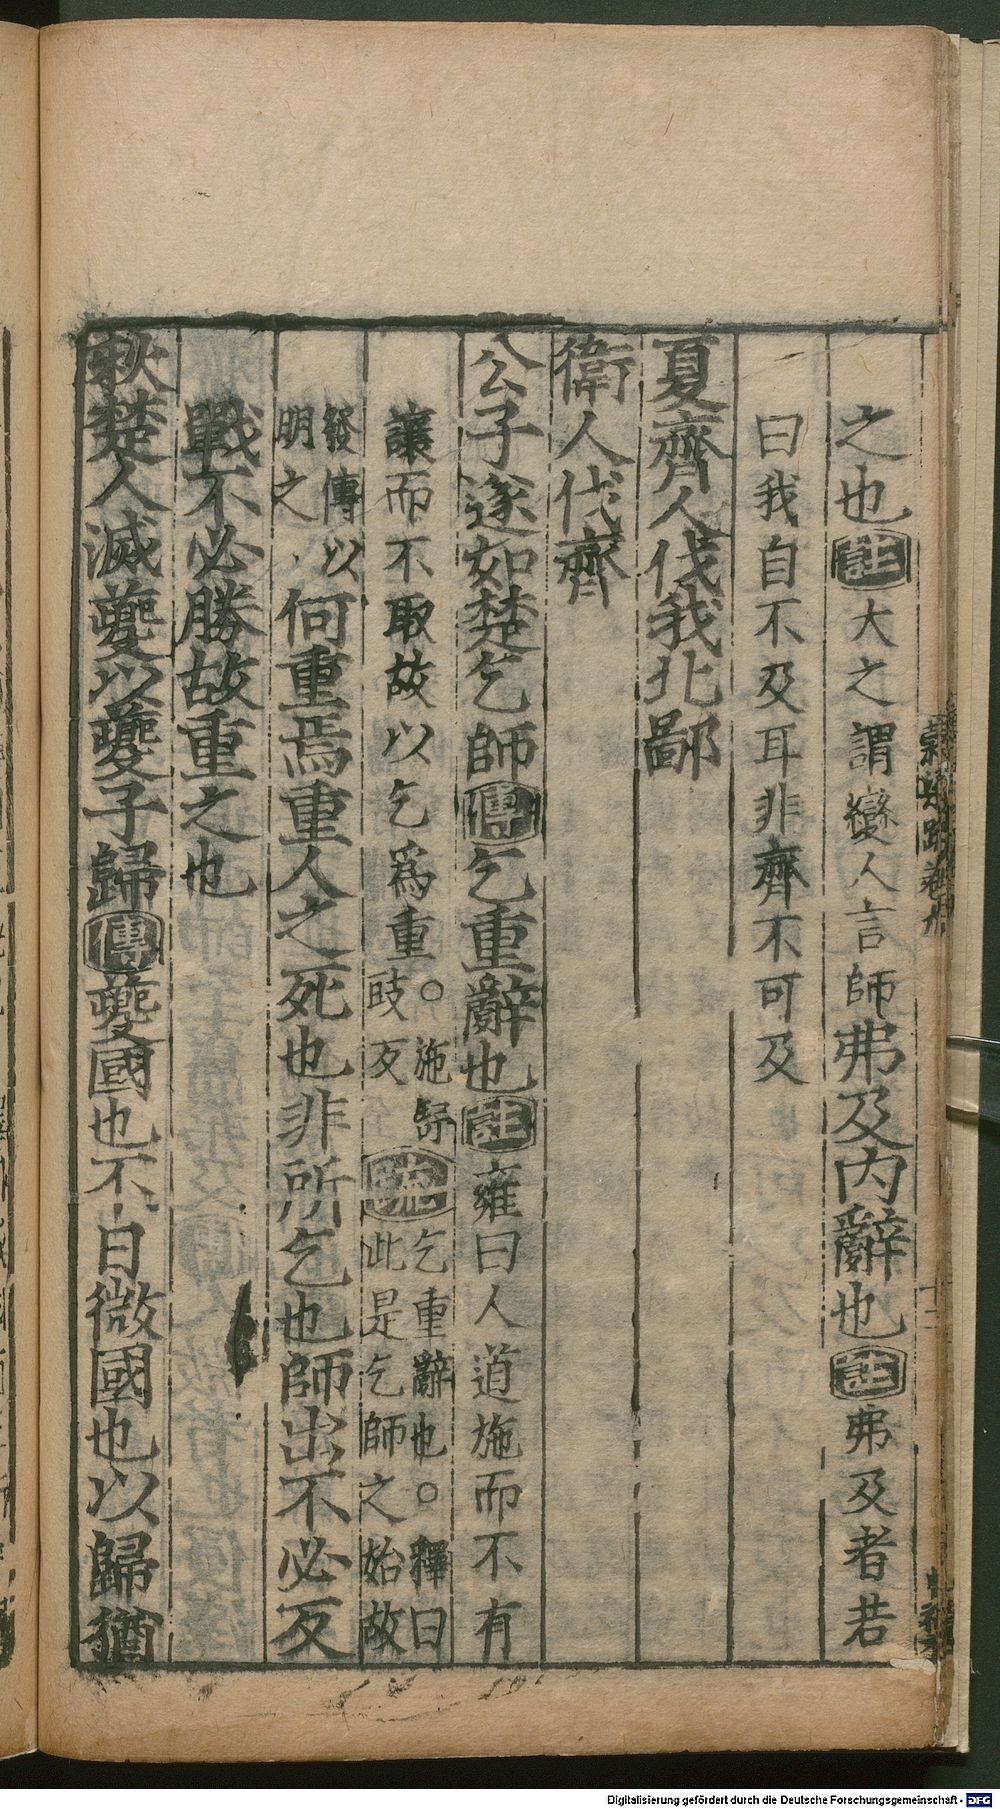 之也註大之謂變人言師弗及內辭也註弗及者若
曰我自不及耳非齊不可及
夏齊人伐我北鄙
衛人伐齊
公子遂如楚乞師傳乞重辭也註雍曰人道施而不有
讓而不取故以乞爲重○施
䜴反疏乞重辭也○釋曰
此是乞師之始故
發傳以
明之何重焉重人之死也非所乞也師出不必反
戰不必勝故重之也
秋楚人滅夔以夔子歸傳夔國也不日微國也以歸猶
Digitalisierung gefördert durch die Deutsche Forschungsgemeinschaft - DFG